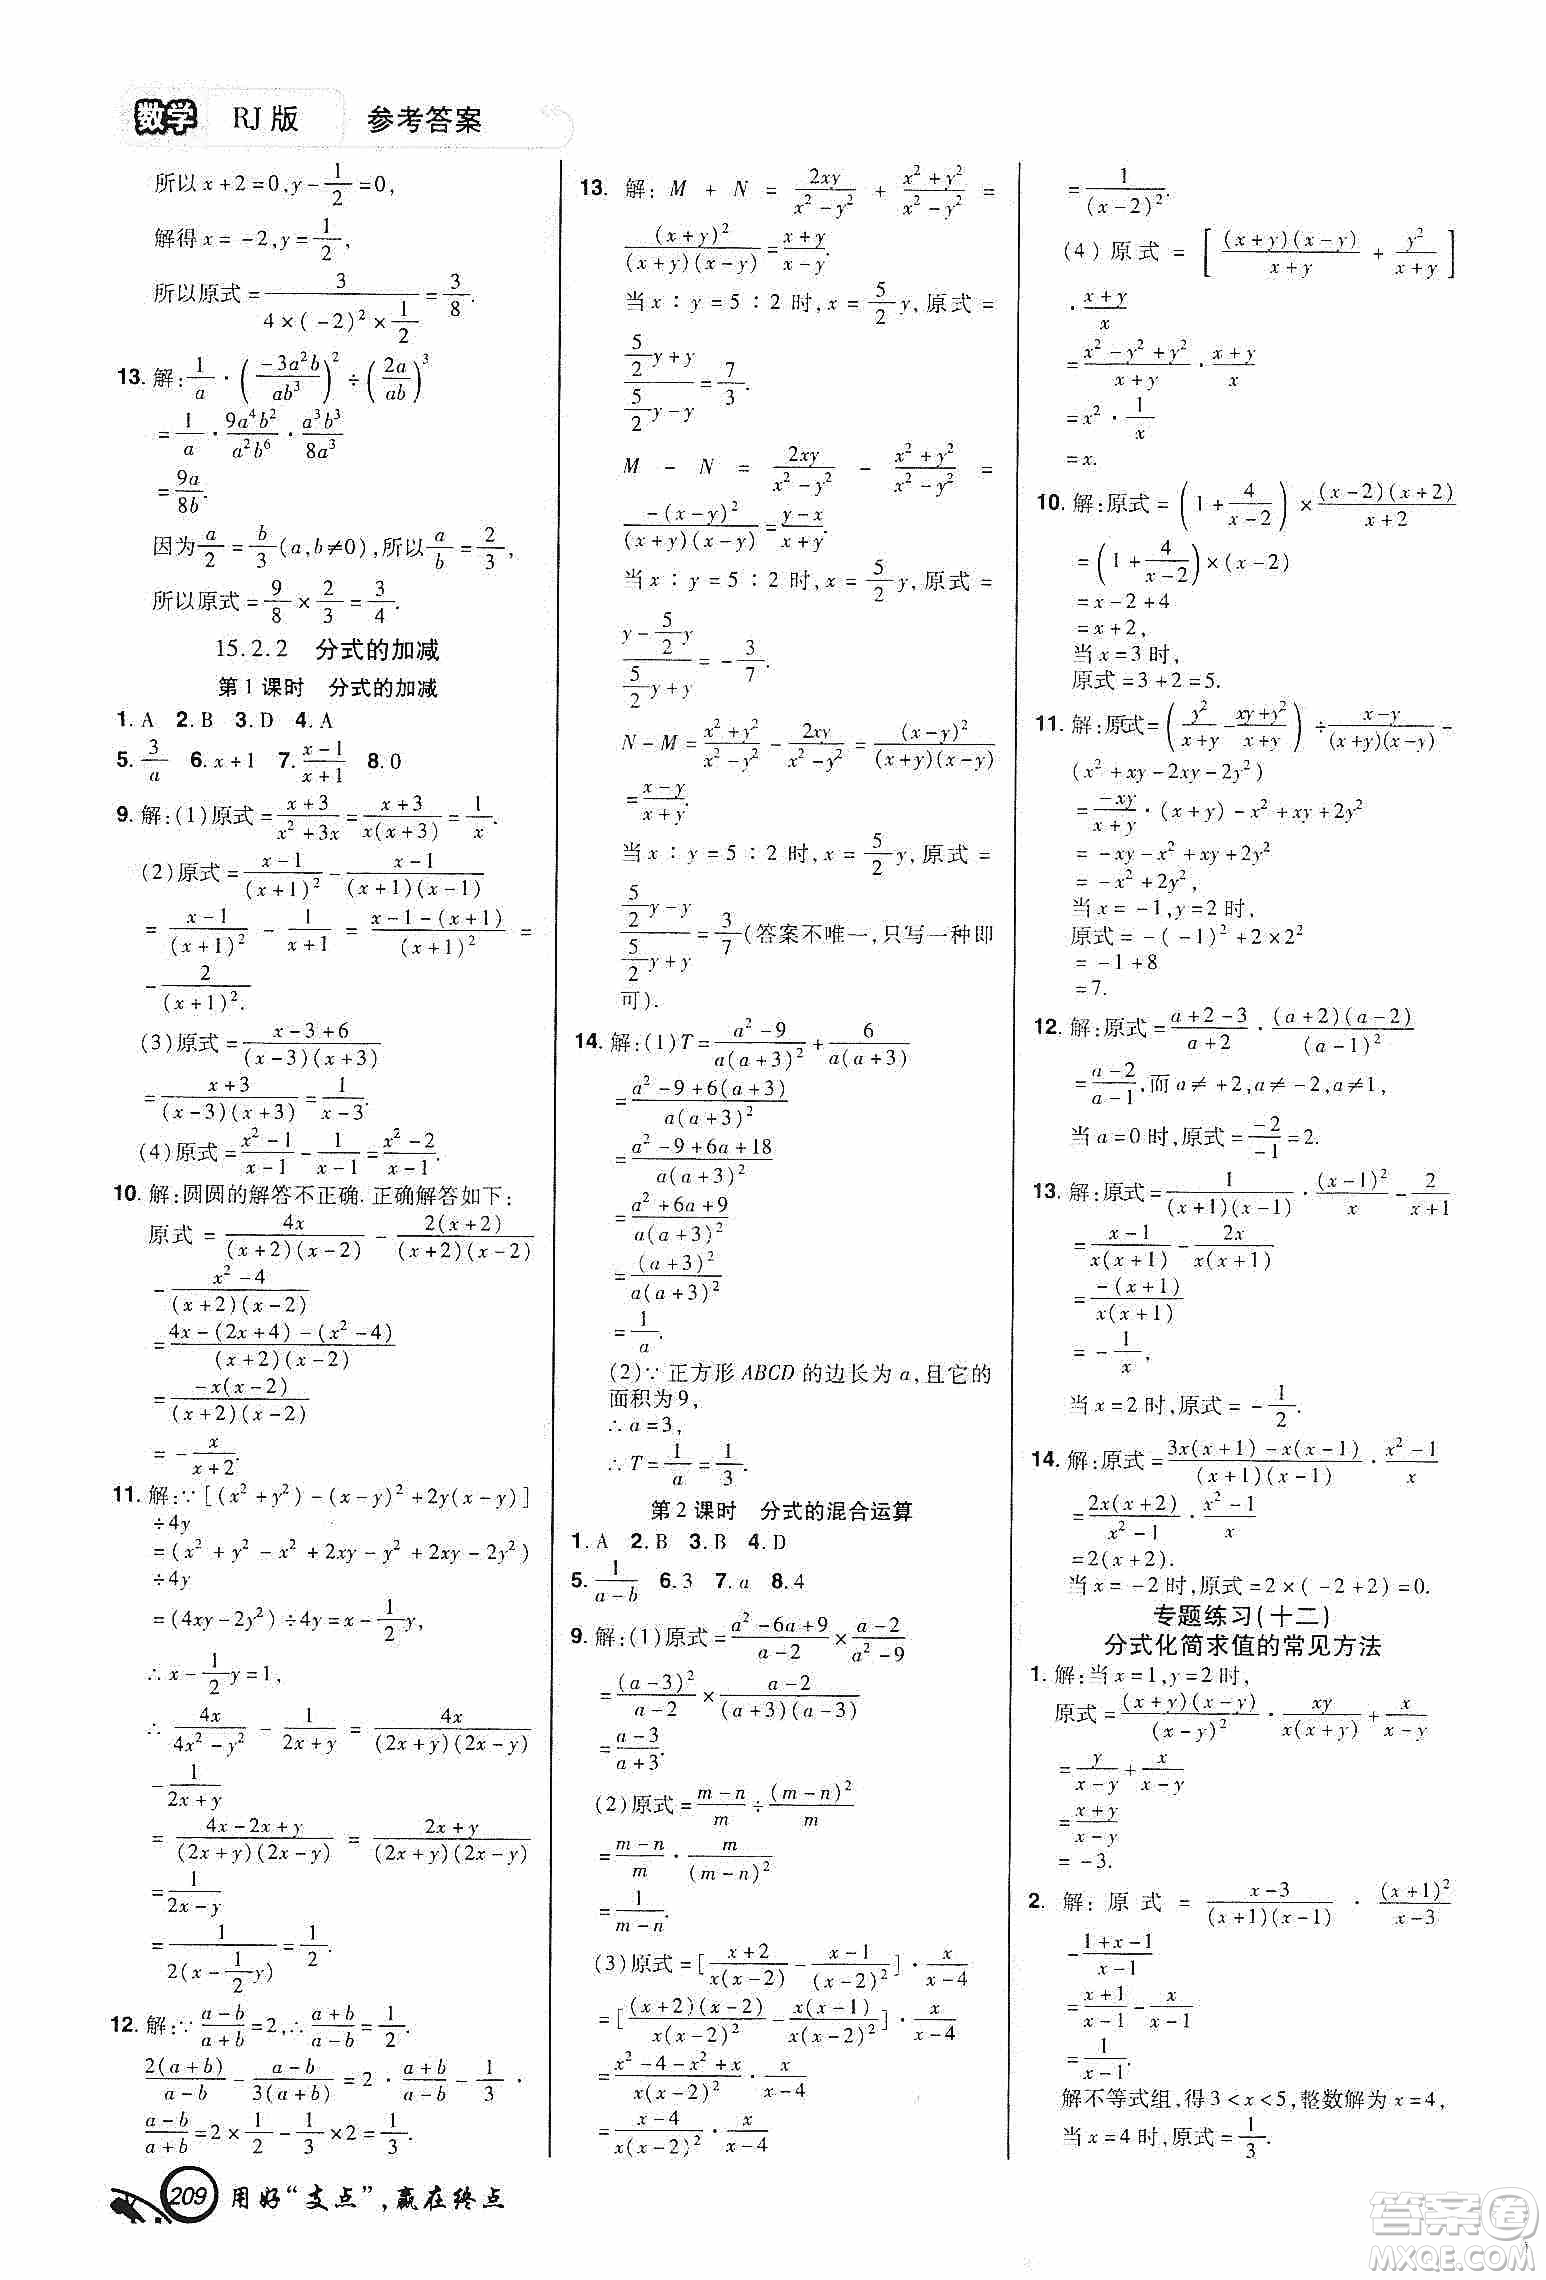 数学 RJ版 参考答案
所以x+2=0,y-1/2=0,
解得x=-2,y=1/2,
所以原式=3/(4×(-2)²×1/2)=3/8.
13.解:1/a·(-3a²b/ab³)²÷(2a/ab)³
=1/a·9a⁴b²/a²b⁶·a³b³/8a³
=9a/8b.
因为a/2=b/3(a,b≠0),所以a/b=2/3,
所以原式=9/8×2/3=3/4.
15.2.2 分式的加减
第1课时 分式的加减
1.A 2.B 3.D 4.A
5.3/a 6.x+1 7.(x-1)/(x+1) 8.0
9.解:(1)原式=(x+3)/(x²+3x)=(x+3)/(x(x+3))=1/x.
(2)原式=(x-1)/(x+1)²-(x-1)/((x+1)(x-1))
=(x-1)/(x+1)²-1/(x+1)=(x-1-(x+1))/(x+1)²=
-2/(x+1)².
(3)原式=(x-3+6)/((x-3)(x+3))
=(x+3)/((x-3)(x+3))=1/(x-3).
(4)原式=(x²-1)/(x-1)-1/(x-1)=(x²-2)/(x-1).
10.解:圆圆的解答不正确.正确解答如下:
原式=4x/((x+2)(x-2))-2(x+2)/((x+2)(x-2))
-(x²-4)/((x+2)(x-2))
=(4x-(2x+4)-(x²-4))/((x+2)(x-2))
=-x(x-2)/((x+2)(x-2))
=-x/(x+2).
11.解:∵[(x²+y²)-(x-y)²+2y(x-y)]
÷4y
=(x²+y²-x²+2xy-y²+2xy-2y²)
÷4y
=(4xy-2y²)÷4y=x-1/2y,
∴x-1/2y=1,
∴4x/(4x²-y²)-1/(2x+y)=4x/((2x+y)(2x-y))
-1/(2x+y)
=(4x-2x+y)/((2x+y)(2x-y))=(2x+y)/((2x+y)(2x-y))
=1/(2x-y)
=1/(2(x-1/2y))=1/2.
12.解:∵(a-b)/(a+b)=2,∴(a+b)/(a-b)=1/2.
2(a+b)/(a-b)-(a-b)/(3(a+b))=2·(a+b)/(a-b)-1/3·
(a-b)/(a+b)=2×1/2-1/3×2=1/3.
209 用好“支点”,赢在终点
13.解:M+N=2xy/(x²-y²)+(x²+y²)/(x²-y²)=
(x+y)²/((x+y)(x-y))=(x+y)/(x-y).
当x:y=5:2时,x=5/2y,原式=
(5/2y+y)/(5/2y-y)=7/3.
M-N=2xy/(x²-y²)-(x²+y²)/(x²-y²)=
-(x-y)²/((x+y)(x-y))=(y-x)/(x+y).
当x:y=5:2时,x=5/2y,原式=
(y-5/2y)/(5/2y+y)=-3/7.
N-M=(x²+y²)/(x²-y²)-2xy/(x²-y²)=(x-y)²/((x+y)(x-y))
=(x-y)/(x+y).
当x:y=5:2时,x=5/2y,原式=
(5/2y-y)/(5/2y+y)=3/7(答案不唯一,只写一种即
可).
14.解:(1)T=(a²-9)/(a(a+3)²)+6/(a(a+3))
=(a²-9+6(a+3))/(a(a+3)²)
=(a²-9+6a+18)/(a(a+3)²)
=(a²+6a+9)/(a(a+3)²)
=(a+3)²/(a(a+3)²)
=1/a.
(2)∵正方形ABCD的边长为a,且它的
面积为9,
∴a=3,
∴T=1/a=1/3.
第2课时 分式的混合运算
1.A 2.B 3.B 4.D
5.1/(a-b) 6.3 7.a 8.4
9.解:(1)原式=(a²-6a+9)/(a-2)×(a-2)/(a²-9)
=(a-3)²/(a-2)×(a-2)/((a+3)(a-3))
=(a-3)/(a+3).
(2)原式=(m-n)/m÷(m-n)²/m
=(m-n)/m·m/(m-n)²
=1/(m-n).
(3)原式=[(x+2)/(x(x-2))-(x-1)/(x-2)²]·x/(x-4)
=[(x+2)(x-2)/(x(x-2)²)-x(x-1)/(x(x-2)²)]·x/(x-4)
=(x²-4-x²+x)/(x(x-2)²)·x/(x-4)
=(x-4)/(x(x-2)²)·x/(x-4)
=1/(x-2)².
(4)原式=[(x+y)(x-y)/(x+y)+y²/(x+y)]
·(x+y)/x
=(x²-y²+y²)/(x+y)·(x+y)/x
=x²·1/x
=x.
10.解:原式=(1+4/(x-2))×(x-2)(x+2)/(x+2)
=(1+4/(x-2))×(x-2)
=x-2+4
=x+2,
当x=3时,
原式=3+2=5.
11.解:原式=(y²/(x+y)-(xy+y²)/(x+y))÷(x-y)/((x+y)(x-y))-
(x²+xy-2xy-2y²)
=-xy/(x+y)·(x+y)-x²+xy+2y²
=-xy-x²+xy+2y²
=-x²+2y²,
当x=-1,y=2时,
原式=-(-1)²+2×2²
=-1+8
=7.
12.解:原式=(a+2-3)/(a+2)·(a+2)(a-2)/(a-1)²
=(a-2)/(a-1),而a≠+2,a≠-2,a≠1,
当a=0时,原式=-2/-1=2.
13.解:原式=1/((x+1)(x-1))·(x-1)²/x-2/(x+1)
=(x-1)/(x(x+1))-2x/(x(x+1))
=-(x+1)/(x(x+1))
=-1/x,
当x=2时,原式=-1/2.
14.解:原式=(3x(x+1)-x(x-1))/((x+1)(x-1))·(x²-1)/x
=2x(x+2)/(x²-1)·(x²-1)/x
=2(x+2).
当x=-2时,原式=2×(-2+2)=0.
专题练习(十二)
分式化简求值的常见方法
1.解:当x=1,y=2时,
原式=(x+y)(x-y)/(x-y)²·xy/(x(x+y))+x/(x-y)
=y/(x-y)+x/(x-y)
=(x+y)/(x-y)
=-3.
2.解:原式=(x-3)/((x+1)(x-1))·(x+1)²/(x-3)
-(1+x-1)/(x-1)
=(x+1)/(x-1)-x/(x-1)
=1/(x-1).
解不等式组,得3<x<5,整数解为x=4,
当x=4时,原式=1/3.
答案卷
MXQE.COM